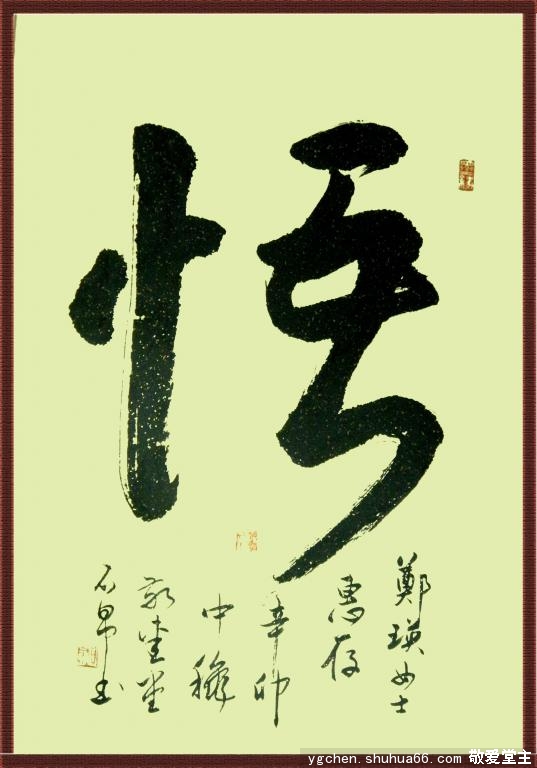 悟
鄭瑛女士
惠存
辛卯
中秋
敬爱堂
石帛书
ygchen.shuhua66.com 敬爱堂主